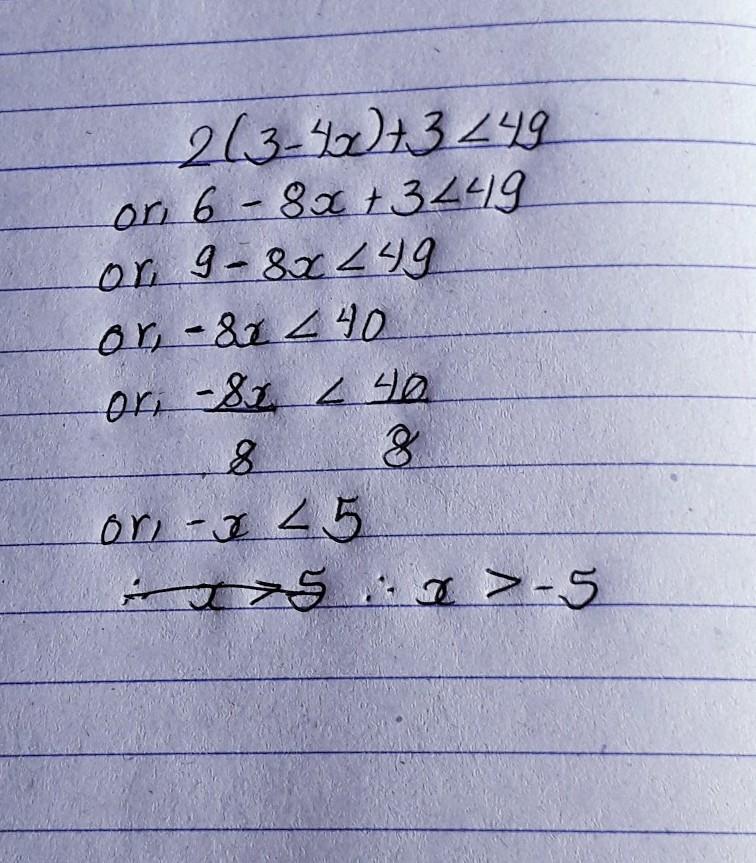 2(3-4x)+3<49
or, 6 - 8x + 3<49
or, 9 - 8x < 49
or, -8x < 40
or, -8x/8 < 40/8
or, -x < 5
∴ x > 5 ∴ x > -5